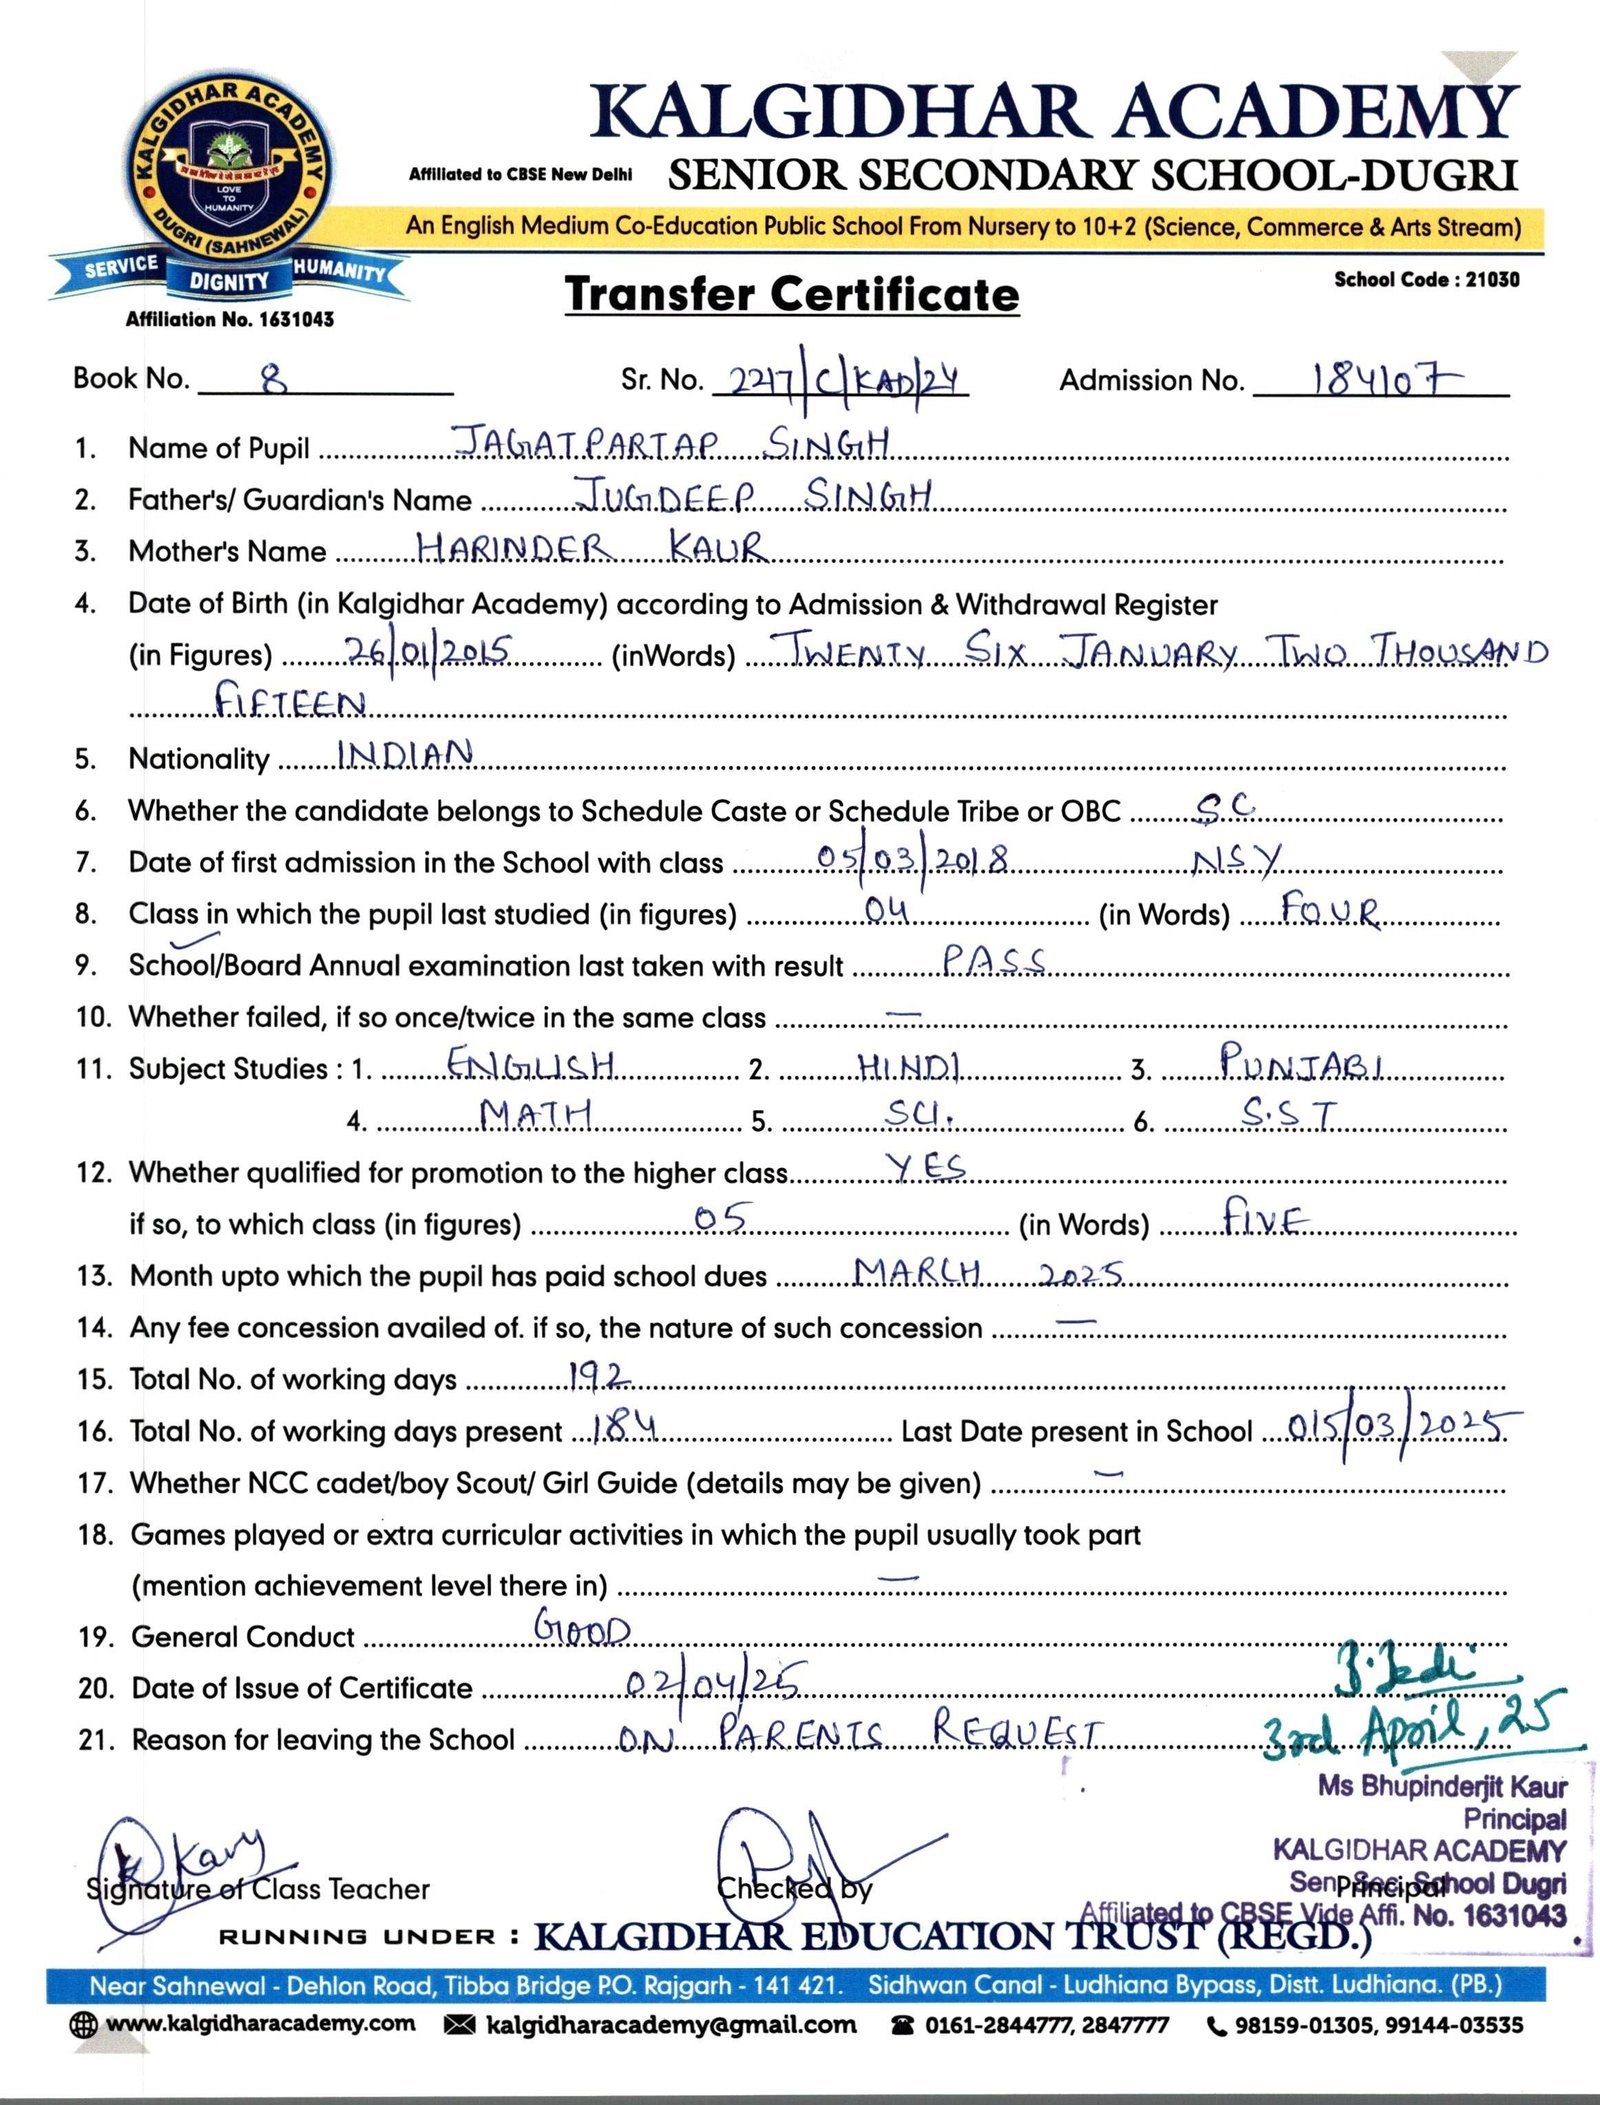 KALGIDHAR ACADEMY
DUGRI (SAHNEWAL)
LOVE
TO
HUMANITY
SERVICE DIGNITY HUMANITY
Affiliation No. 1631043
KALGIDHAR ACADEMY
Affiliated to CBSE New Delhi SENIOR SECONDARY SCHOOL-DUGRI
An English Medium Co-Education Public School From Nursery to 10+2 (Science, Commerce & Arts Stream)
School Code : 21030
Transfer Certificate
Book No. 8 Sr. No. 2217/C/KAD/24 Admission No. 184107
1. Name of Pupil JAGATPARTAP SINGH
2. Father's/ Guardian's Name JUGDEEP SINGH
3. Mother's Name HARINDER KAUR
4. Date of Birth (in Kalgidhar Academy) according to Admission & Withdrawal Register
(in Figures) 26/01/2015 (inWords) TWENTY SIX JANUARY TWO THOUSAND
FIFTEEN
5. Nationality INDIAN
6. Whether the candidate belongs to Schedule Caste or Schedule Tribe or OBC S.C
7. Date of first admission in the School with class 05/03/2018 NSY
8. Class in which the pupil last studied (in figures) 04 (in Words) FOUR
9. School/Board Annual examination last taken with result PASS
10. Whether failed, if so once/twice in the same class —
11. Subject Studies : 1. ENGLISH 2. HINDI 3. PUNJABI
4. MATH 5. SCI. 6. S.S T
12. Whether qualified for promotion to the higher class YES
if so, to which class (in figures) 05 (in Words) FIVE
13. Month upto which the pupil has paid school dues MARCH 2025
14. Any fee concession availed of. if so, the nature of such concession —
15. Total No. of working days 192
16. Total No. of working days present 184 Last Date present in School 015/03/2025
17. Whether NCC cadet/boy Scout/ Girl Guide (details may be given) —
18. Games played or extra curricular activities in which the pupil usually took part
(mention achievement level there in) —
19. General Conduct GOOD
20. Date of Issue of Certificate 02/04/25
21. Reason for leaving the School ON PARENTS REQUEST
3rd April, 25
Ms Bhupinderjit Kaur
Principal
KALGIDHAR ACADEMY
Sen. Sec. School Dugri
Affiliated to CBSE Vide Affi. No. 1631043
Signature of Class Teacher Checked by Principal
RUNNING UNDER : KALGIDHAR EDUCATION TRUST (REGD.)
Near Sahnewal - Dehlon Road, Tibba Bridge P.O. Rajgarh - 141 421. Sidhwan Canal - Ludhiana Bypass, Distt. Ludhiana. (PB.)
www.kalgidharacademy.com kalgidharacademy@gmail.com 0161-2844777, 2847777 98159-01305, 99144-03535